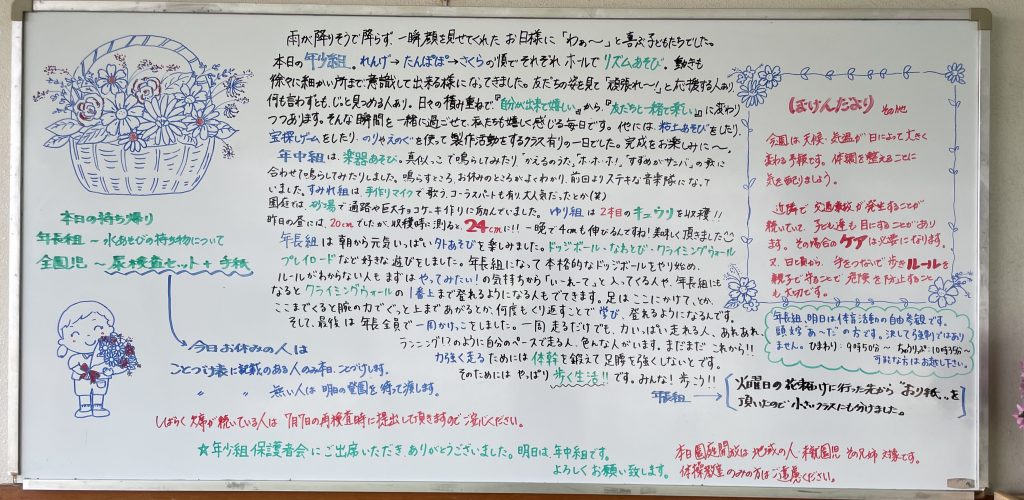 雨が降りそうで降らず、一瞬顔を見せてくれた お日様に「わぁ〜」と喜ぶ子どもたちでした。
本日の年少組。れんげ→たんぽぽ→さくらの順で それぞれ ホールで リズムあそび。動きも
徐々に細かい所まで意識して出来る様になってきました。友だちの姿を見て「頑張れー!」と応援する人あり、
何も言わずとも、じっと見つめる人あり。日々の積み重ねで『自分が出来て嬉しい』から、『友だちと一緒で楽しい』に変わり
つつあります。そんな瞬間を一緒に過ごせて、私たちも嬉しく感じる毎日です。他には、粘土あそびをしたり、
宝探しゲームをしたり、のりやえのぐを使って製作活動をするクラス有りの一日でした。完成をお楽しみに〜。
年中組は、楽器あそび。真似っこで鳴らしてみたり「かえるのうた」「ホ・ホ・ホ!」「すずめがサンバ」の歌に
合わせて鳴らしてみたりしました。鳴らすところ、お休みのところがよくわかり、前回よりステキな音楽隊になって
いました。すみれ組は 手作りマイクで歌う。コーラスパートも有り大人気だったとか(笑)
園庭では、砂場で通路や巨大チョコケーキ作りに励んでいました。ゆり組は2本目のキュウリを収穫!!
昨日の昼には、20cmでしたが、収穫時に測ると、24cmに!!一晩で4cmも伸びるんですね!美味しく頂きました
年長組は朝から元気いっぱい外あそびを楽しみました。ドッジボール・なわとび・クライミングウォール
プレイロードなど好きな遊びをしました。年長組になって本格的なドッジボールをやり始め、
ルールがわからない人も まずは やってみたい!の気持ちから「い〜れ〜て」と入ってくる人や、年長組にも
なると クライミングウォールの1番上まで登れるようになる人もでてきます。足はここにかけて、とか、
ここまでくると腕の力でぐっと上まであがるとか、何度もくり返すことで学び、登れるようになるんです。
そして、最後は年長全員で一周かけっこしました。一周走るだけでも、力いっぱい走れる人、あれあれ
ランニング!?のように自分のペースで走る人、色んな人がいます。まだまだこれから!!
力強く走るためには体幹を鍛えて足腰を強くしないとです。
そのためにはやっぱり歩く生活!!です。みんな!歩こう!!
本日の持ち帰り
年長組 〜水あそびの持ち物について
全園児 〜尿検査セット+手紙
今日お休みの人は
ことづけ表に記載のある人のみ本日、ことづけします。
〃 〃 無い人は 明日の登園を待って渡します。
しばらく欠席が続いている人は、7月7日の再検査時に提出して頂きますのでご安心ください。
☆年少組 保護者会にご出席いただき、ありがとうございました。明日は、年中組です。
よろしくお願い致します。
ほけんだより その他
今週は天候・気温が日によって大きく
変わる予報です。体調を整えることに
気を配りましょう。
近隣で交通事故が発生することが
続いていて、子ども達も目にすることがあり
ます。その場合のケアは必要になります。
又、日頃から、手をつないで歩きルールを
親子で守ることで危険を防止すること
も大切です。
年長組、明日は体育活動の自由参観です。
頭文字あ〜たの方です。決して強制ではあり
ません。ひまわり:9時50分〜 ちゅうりっぷ:10時35分〜
可能な方はお越し下さい。
年長組
火曜日の花届けに行った先から"おり紙"を
頂いたので小さいクラスにも分けました。
本日園庭開放は 地域の人、未就園児 その兄姉 対象です。
体操教室のみの方はご遠慮ください。